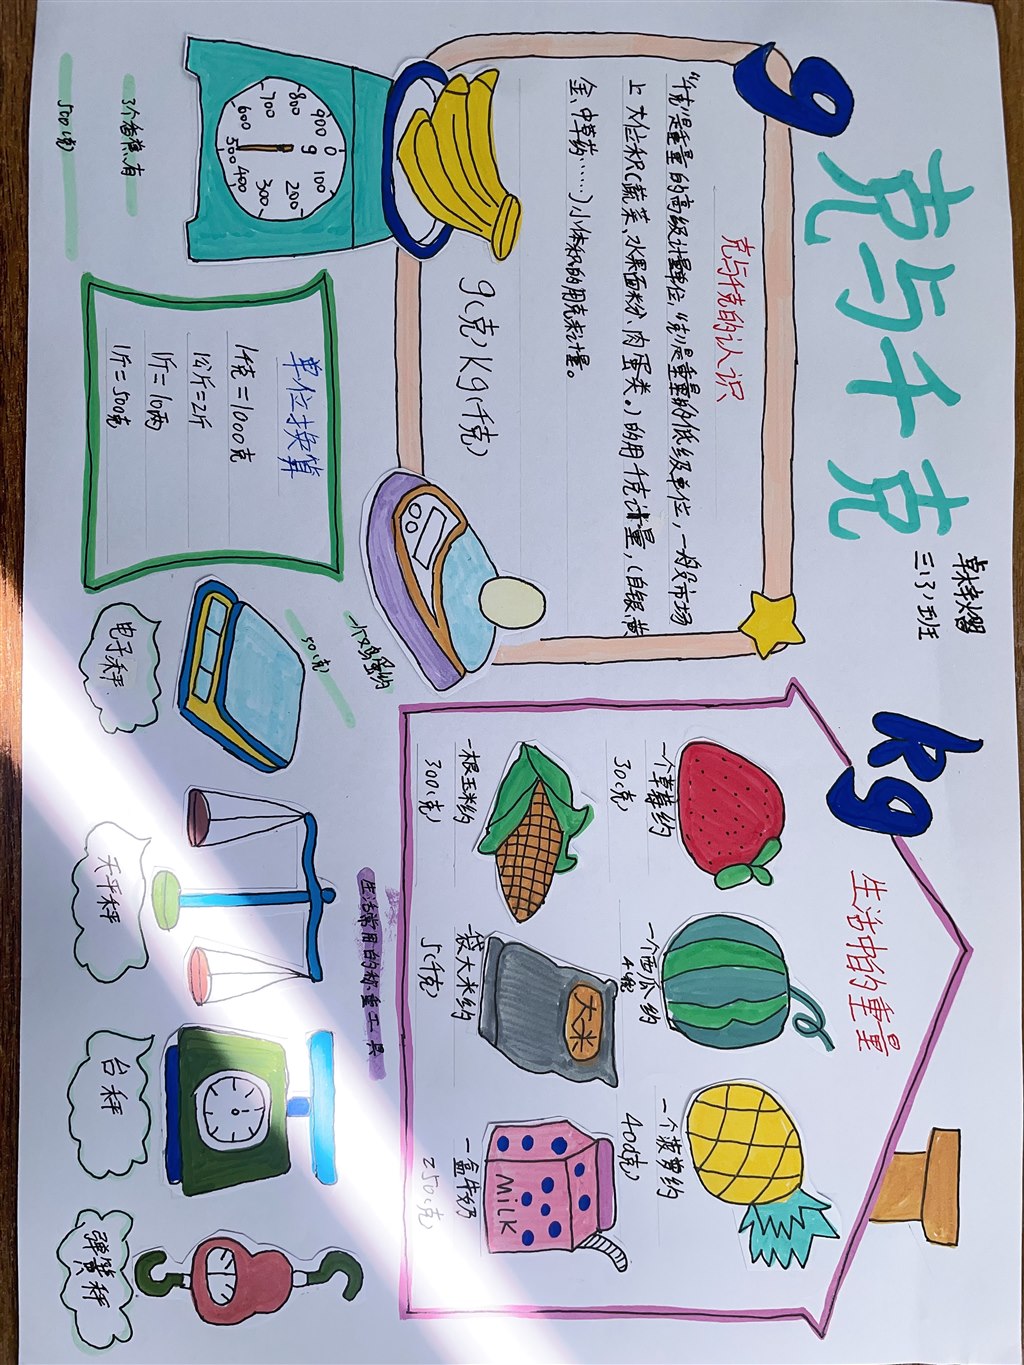 克与千克
三(3)班
g
克与千克的认识
"千克"是重量的高级计量单位,"克"是重量的低级单位,一般市场
上大位积(蔬菜、水果面粉、肉蛋类。)的用千克计量,(白银、黄
金、中草药……)小体积的用克来计量。
g(克) kg(千克)
0
100
200
300
400
500
600
700
800
900
g
3个香蕉有
500(克)
单位换算
1千克=1000克
1公斤=2斤
1斤=10两
1斤=500克
一个鸡蛋约
50(克)
kg
生活中的重量
一个草莓约
30(克)
一个西瓜约
一个菠萝约
400(克)
一根玉米约
300(克)
大米
一袋大米约
5(千克)
MILK
一盒牛奶
250(克)
生活常用的称重工具
电子秤
天平秤
台秤
弹簧秤